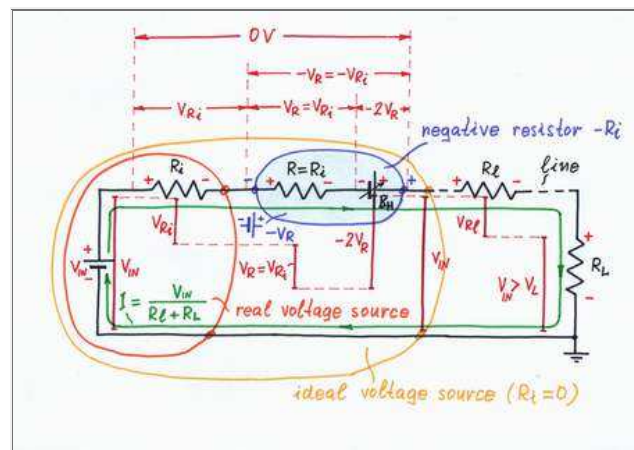 0V
-VR = -VRi
VRi
VR = VRi
-2VR
negative resistor -Ri
Ri
R=Ri
BH
Rl
line
+ - + - - + + -
VRi
- +
-VR
-2VR
VRl
+
-
VIN
VIN
VR = VRi
VIN
VIN > VL
+
RL
-
I = VIN / Rl + RL
real voltage source
ideal voltage source (Ri=0)